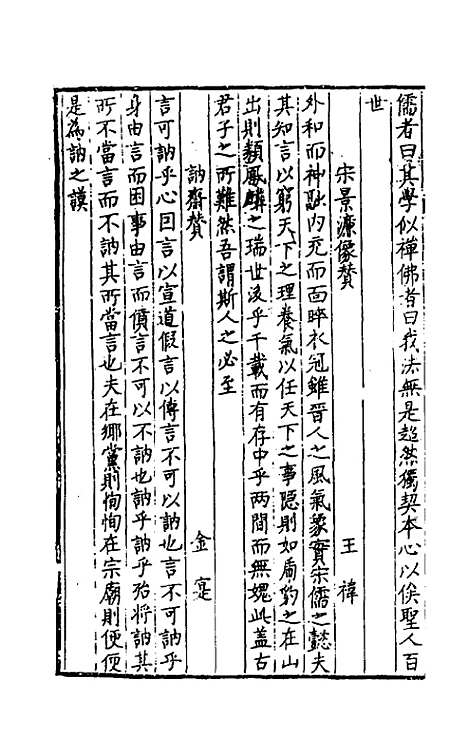 儒者曰其學似禪佛者曰我法無是超然獨契本心以俟聖人百
世
宋景濂像贊　王禕
外和而神融内充而面睟衣冠雖晉人之風氣象實宋儒之懿夫
其知言以窮天下之理養氣以任天下之事隱則如虎豹之在山
出則類麒麟之瑞世後乎千載而有存中乎两間而無愧此盖古
君子之所難然吾謂斯人之必至
訥齋贊　金寔
言可訥乎心因言以宣道假言以傳言不可以訥也言不可訥乎
身由言而困事由言而僨言不可以不訥也訥乎訥乎殆將訥其
所不當言而不訥其所當言也夫在鄉黨則恂恂在宗廟則便便
是為訥之謨